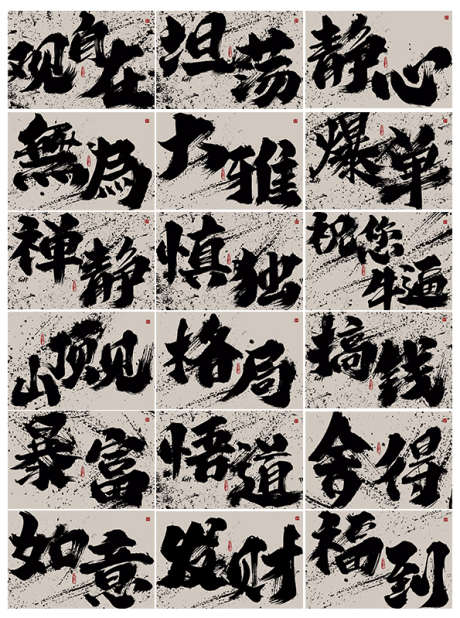 观自在
坦荡
静心
無為
大雅
爆单
禅静
慎独
祝您牛逼
山顶见
格局
搞钱
暴富
悟道
舍得
如意
发财
福到